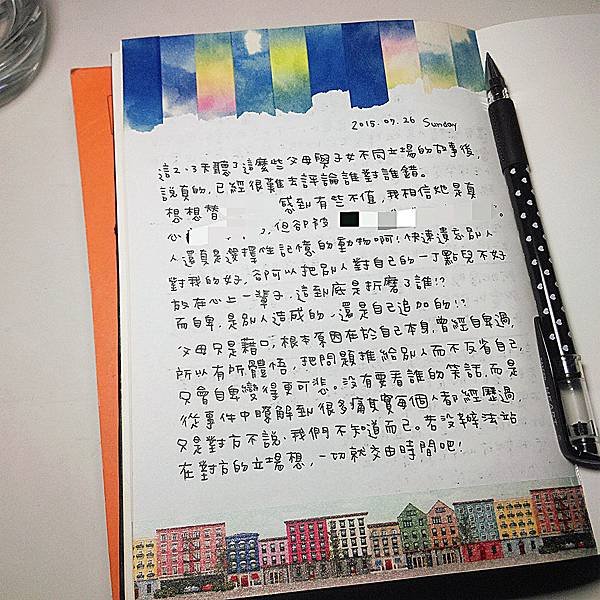 2015.07.26 Sunday
這2、3天聽了這麼些父母與子女不同立場的故事後,
說真的,已經很難去評論誰對誰錯。
想想替 感到有些不值,我相信她是真
心 ,但卻被 。
人還真是選擇性記憶的動物啊!快速遺忘別人
對我的好,卻可以把別人對自己的一丁點兒不好
放在心上一輩子,這到底是折磨了誰!?
而自卑,是別人造成的,還是自己追加的!?
父母只是藉口,根本原因在於自己本身,曾經自卑過,
所以有所體悟,把問題推給別人而不反省自己,
只會自卑變得更可悲。沒有要看誰的笑話,而是
從事件中瞭解到很多痛其實每個人都經歷過,
只是對方不說、我們不知道而已。若沒辦法站
在對方的立場想,一切就交由時間吧!